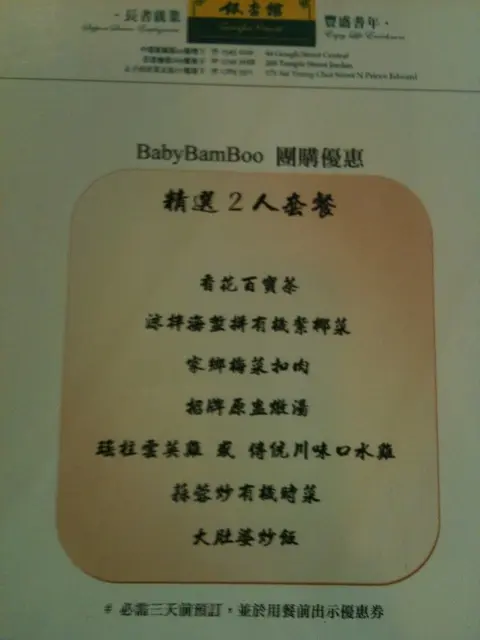 ·長者就業·
銀杏館
豐盛善年·
Enjoy Life Enrichment
44 Gough Street Central
BabyBamBoo 團購優惠
精選 2 人套餐
看花百寶茶
涼拌海蜇拼有機紫椰菜
家鄉梅菜扣肉
招牌原盅燉湯
瑤柱雲英雞 或 傳統川味口水雞
蒜蓉炒有機時菜
大肚婆炒飯
# 必需三天前預訂，並於用餐前出示優惠券